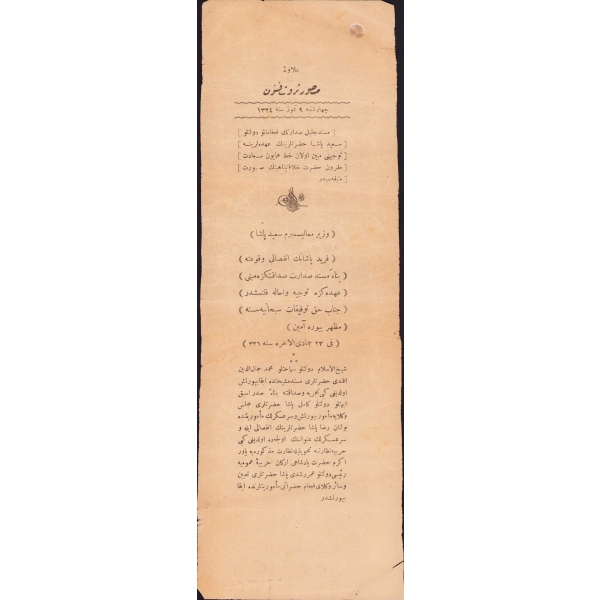 علاوهٔ
مصور ثروت فنون
چهارشنبه ٩ تموز سنه ١٣٢٤
[ مسند جلیل صدارتك فخامتلو دولتلو ]
[ سعید پاشا حضرتلرینك عهده‌لرینه ]
[ توجیهنی مبین اولان خط همایون سعادت ]
[ مقرون حضرت خلافتپناهینك صورت ]
[ منیفه‌سیدر ]
( وزیر معالیسمیرم سعید پاشا )
( فرید پاشانك انفصالی وقوعنه )
( بناءً مسند صدارت صداقتكزه مبنی )
( عهده‌كزه توجیه و احاله قلنمشدر )
( جناب حق توفیقات سبحانیه‌سنه )
( مظهر بیوره آمین )
( فی ٢٣ جمادی الآخره سنه ٣٢٦ )
شیخ الاسلام دولتلو سماحتلو محمد جمال‌الدین
افندی حضرتلری مسند مشیختده ابقا بیورلمش
اولدیغی كبی تجربه و صداقته بناءً صدر اسبق
ابهتلو دولتلو كامل پاشا حضرتلری مجلس
وكلایه مأمور بیورلمش و سرعسكرلك مأموریتنده
بولنان رضا پاشا حضرتلرینك انفصالی ایله و
سرعسكرلك عنوانینك اولجه‌ده اولدیغی كبی
حربیه نظارتنه تحویلیله نظارت مذكوره‌یه یاور
اكرم حضرت پادشاهی اركان حربیهٔ عمومیه
رئیسی دولتلو عمر رشدی پاشا حضرتلری تعیین
و سائر وكلای فخام حضراتی مأموریتلرنده ابقا
بیورلمشدر